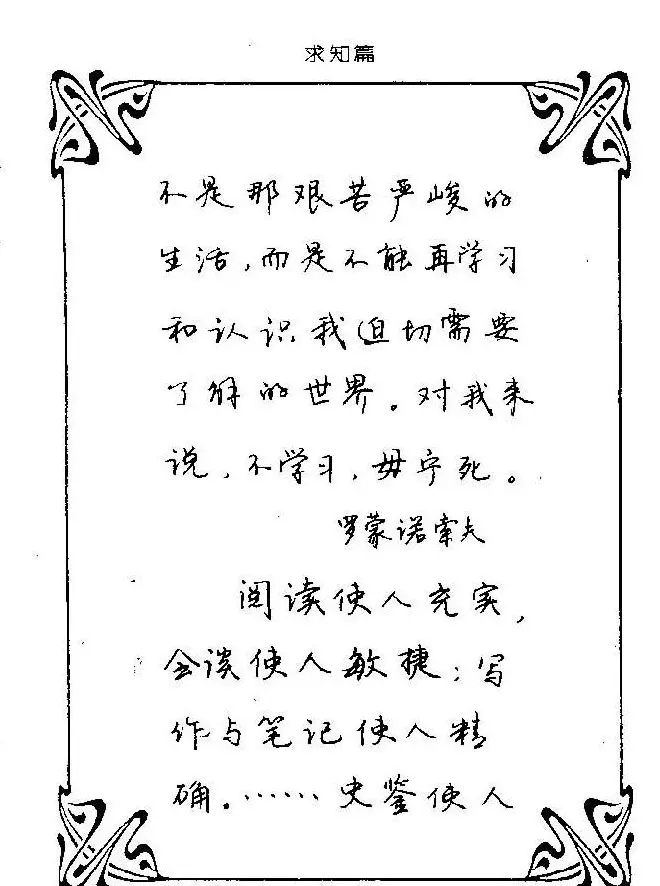 求知篇
不是那艰苦严峻的
生活，而是不能再学习
和认识我迫切需要
了解的世界。对我来
说，不学习，毋宁死。
罗蒙诺索夫
阅读使人充实，
会谈使人敏捷；写
作与笔记使人精
确。……史鉴使人